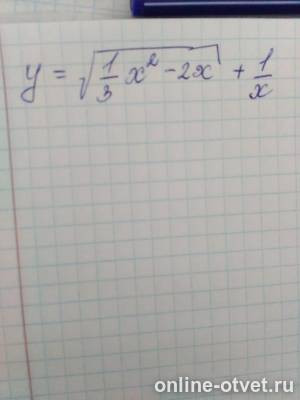 y = √(1/3 x² - 2x) + 1/x
online-otvet.ru